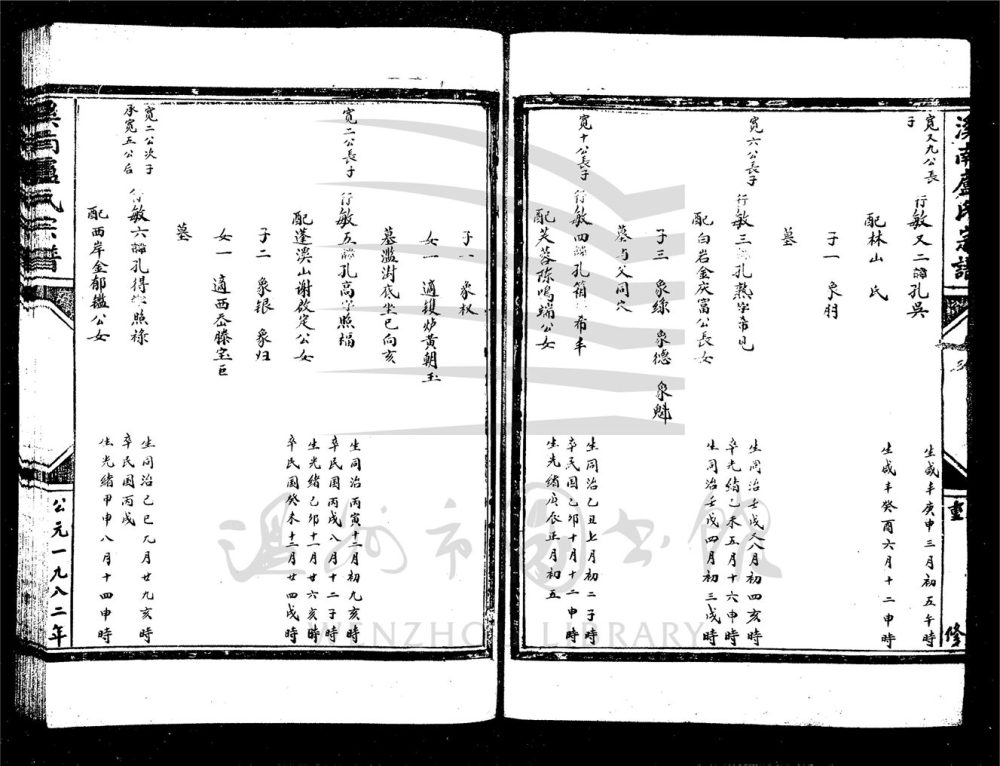 溪南盧氏宗譜
重
修
寬又九公長
子
行敏又二諱孔吳
生咸丰庚申三月初五午時
配林山 氏
生咸丰癸酉六月十二申時
子一 象肘
墓
寬六公長子
行敏三諱孔熟字希見
生同治壬戌又八月初四亥時
卒光緒己未五月十六申時
配白岩金庆富公長女
生同治壬戌四月初三戌時
子三 象綠 象德 象魁
墓与父同穴
寬十公長子
行敏四諱孔箱字希丰
生同治乙丑七月初二子時
卒民国己卯十月十二申時
配芙蓉陈鳴端公女
生光緒庚辰正月初五
子一 象权
女一 適 炉黃朝玉
墓 澍底坐巳向亥
寬二公長子
行敏五諱孔高字照福
生同治丙寅十二月初九亥時
卒民国丙戌八月十二子時
配蓬溪山謝啟定公女
生光緒己卯十一月廿六亥時
卒民国癸未十二月廿四戌時
子二 象银 象归
女一 適西岙滕宝巨
墓
寬二公次子
承寬五公后
行敏六諱孔得字照祿
生同治己巳九月廿九亥時
卒民国丙戌
配西岸金郁鑑公女
生光緒甲申八月十四申時
溪南盧氏宗譜
公元一九八二年
溫州市圖書館
WENZHOU LIBRARY